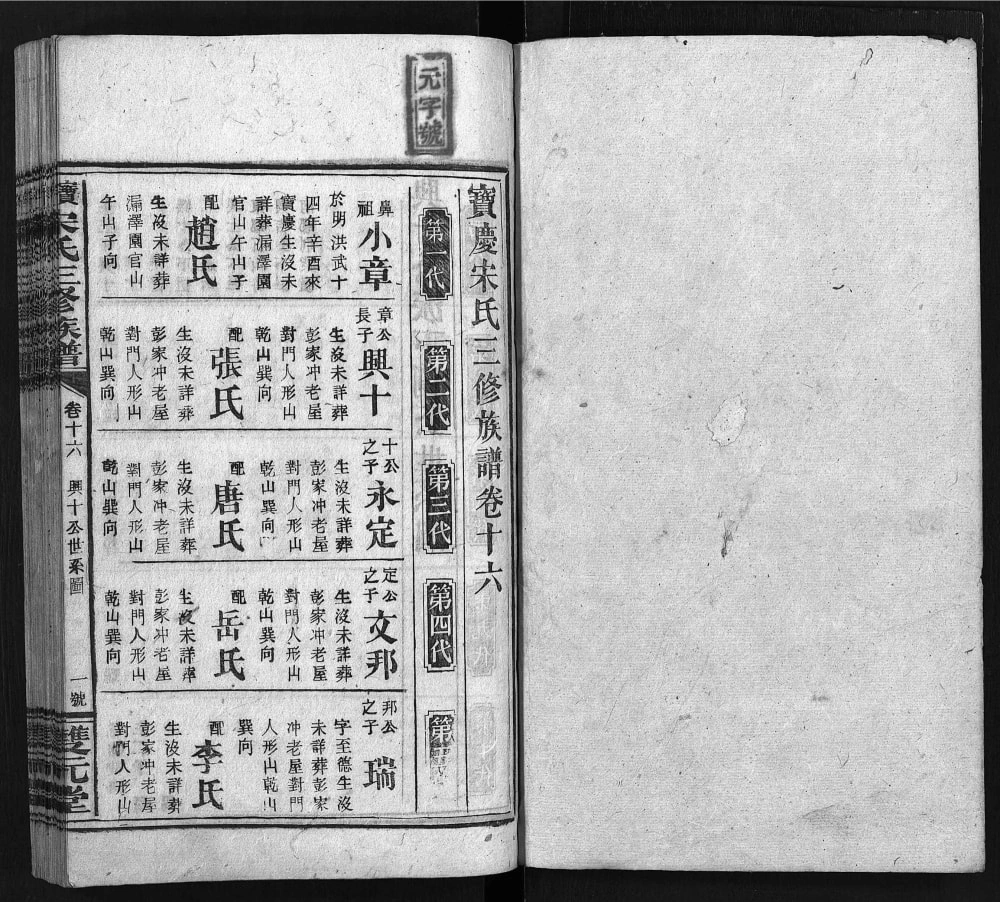 元字號
寶慶宋氏三修族譜卷十六
第一代
第二代
第三代
第四代
第
鼻祖
小章
於明洪武十
四年辛酉來
寶慶生沒未
詳葬漏澤園
官山午山子
配
趙氏
生沒未詳葬
漏澤園官山
午山子向
章公
長子
興十
生沒未詳葬
彭家冲老屋
對門人形山
乾山巽向
配
張氏
生沒未詳葬
彭家冲老屋
對門人形山
乾山巽向
十公
之子
永定
生沒未詳葬
彭家冲老屋
對門人形山
乾山巽向
配
唐氏
生沒未詳葬
彭家冲老屋
對門人形山
乾山巽向
定公
之子
文邦
生沒未詳葬
彭家冲老屋
對門人形山
乾山巽向
配
岳氏
生沒未詳葬
彭家冲老屋
對門人形山
乾山巽向
邦公
之子
瑞
字至德生沒
未詳葬彭家
冲老屋對門
人形山乾山
巽向
配
李氏
生沒未詳葬
彭家冲老屋
對門人形山
寶宋氏三修族譜
卷十六
興十公世系圖
一號
雙元堂